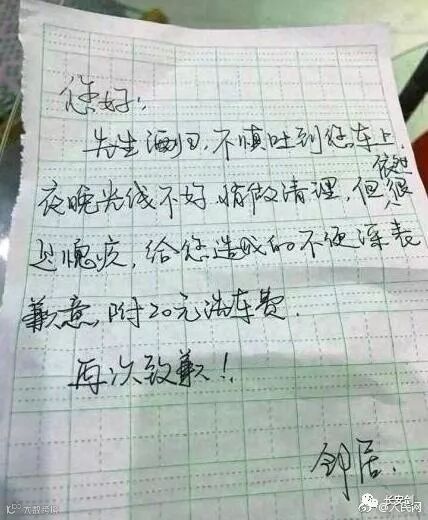 您好!
先生酒归,不慎吐到您车上.
夜晚光线不好稍做清理,但依然很
是愧疚,给您造成的不便深表
歉意,附20元洗车费.
再次致歉!!
邻居.
长安剑
@人民网